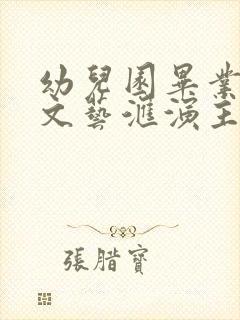 幼兒園畢業
文藝滙演主
張腊寶